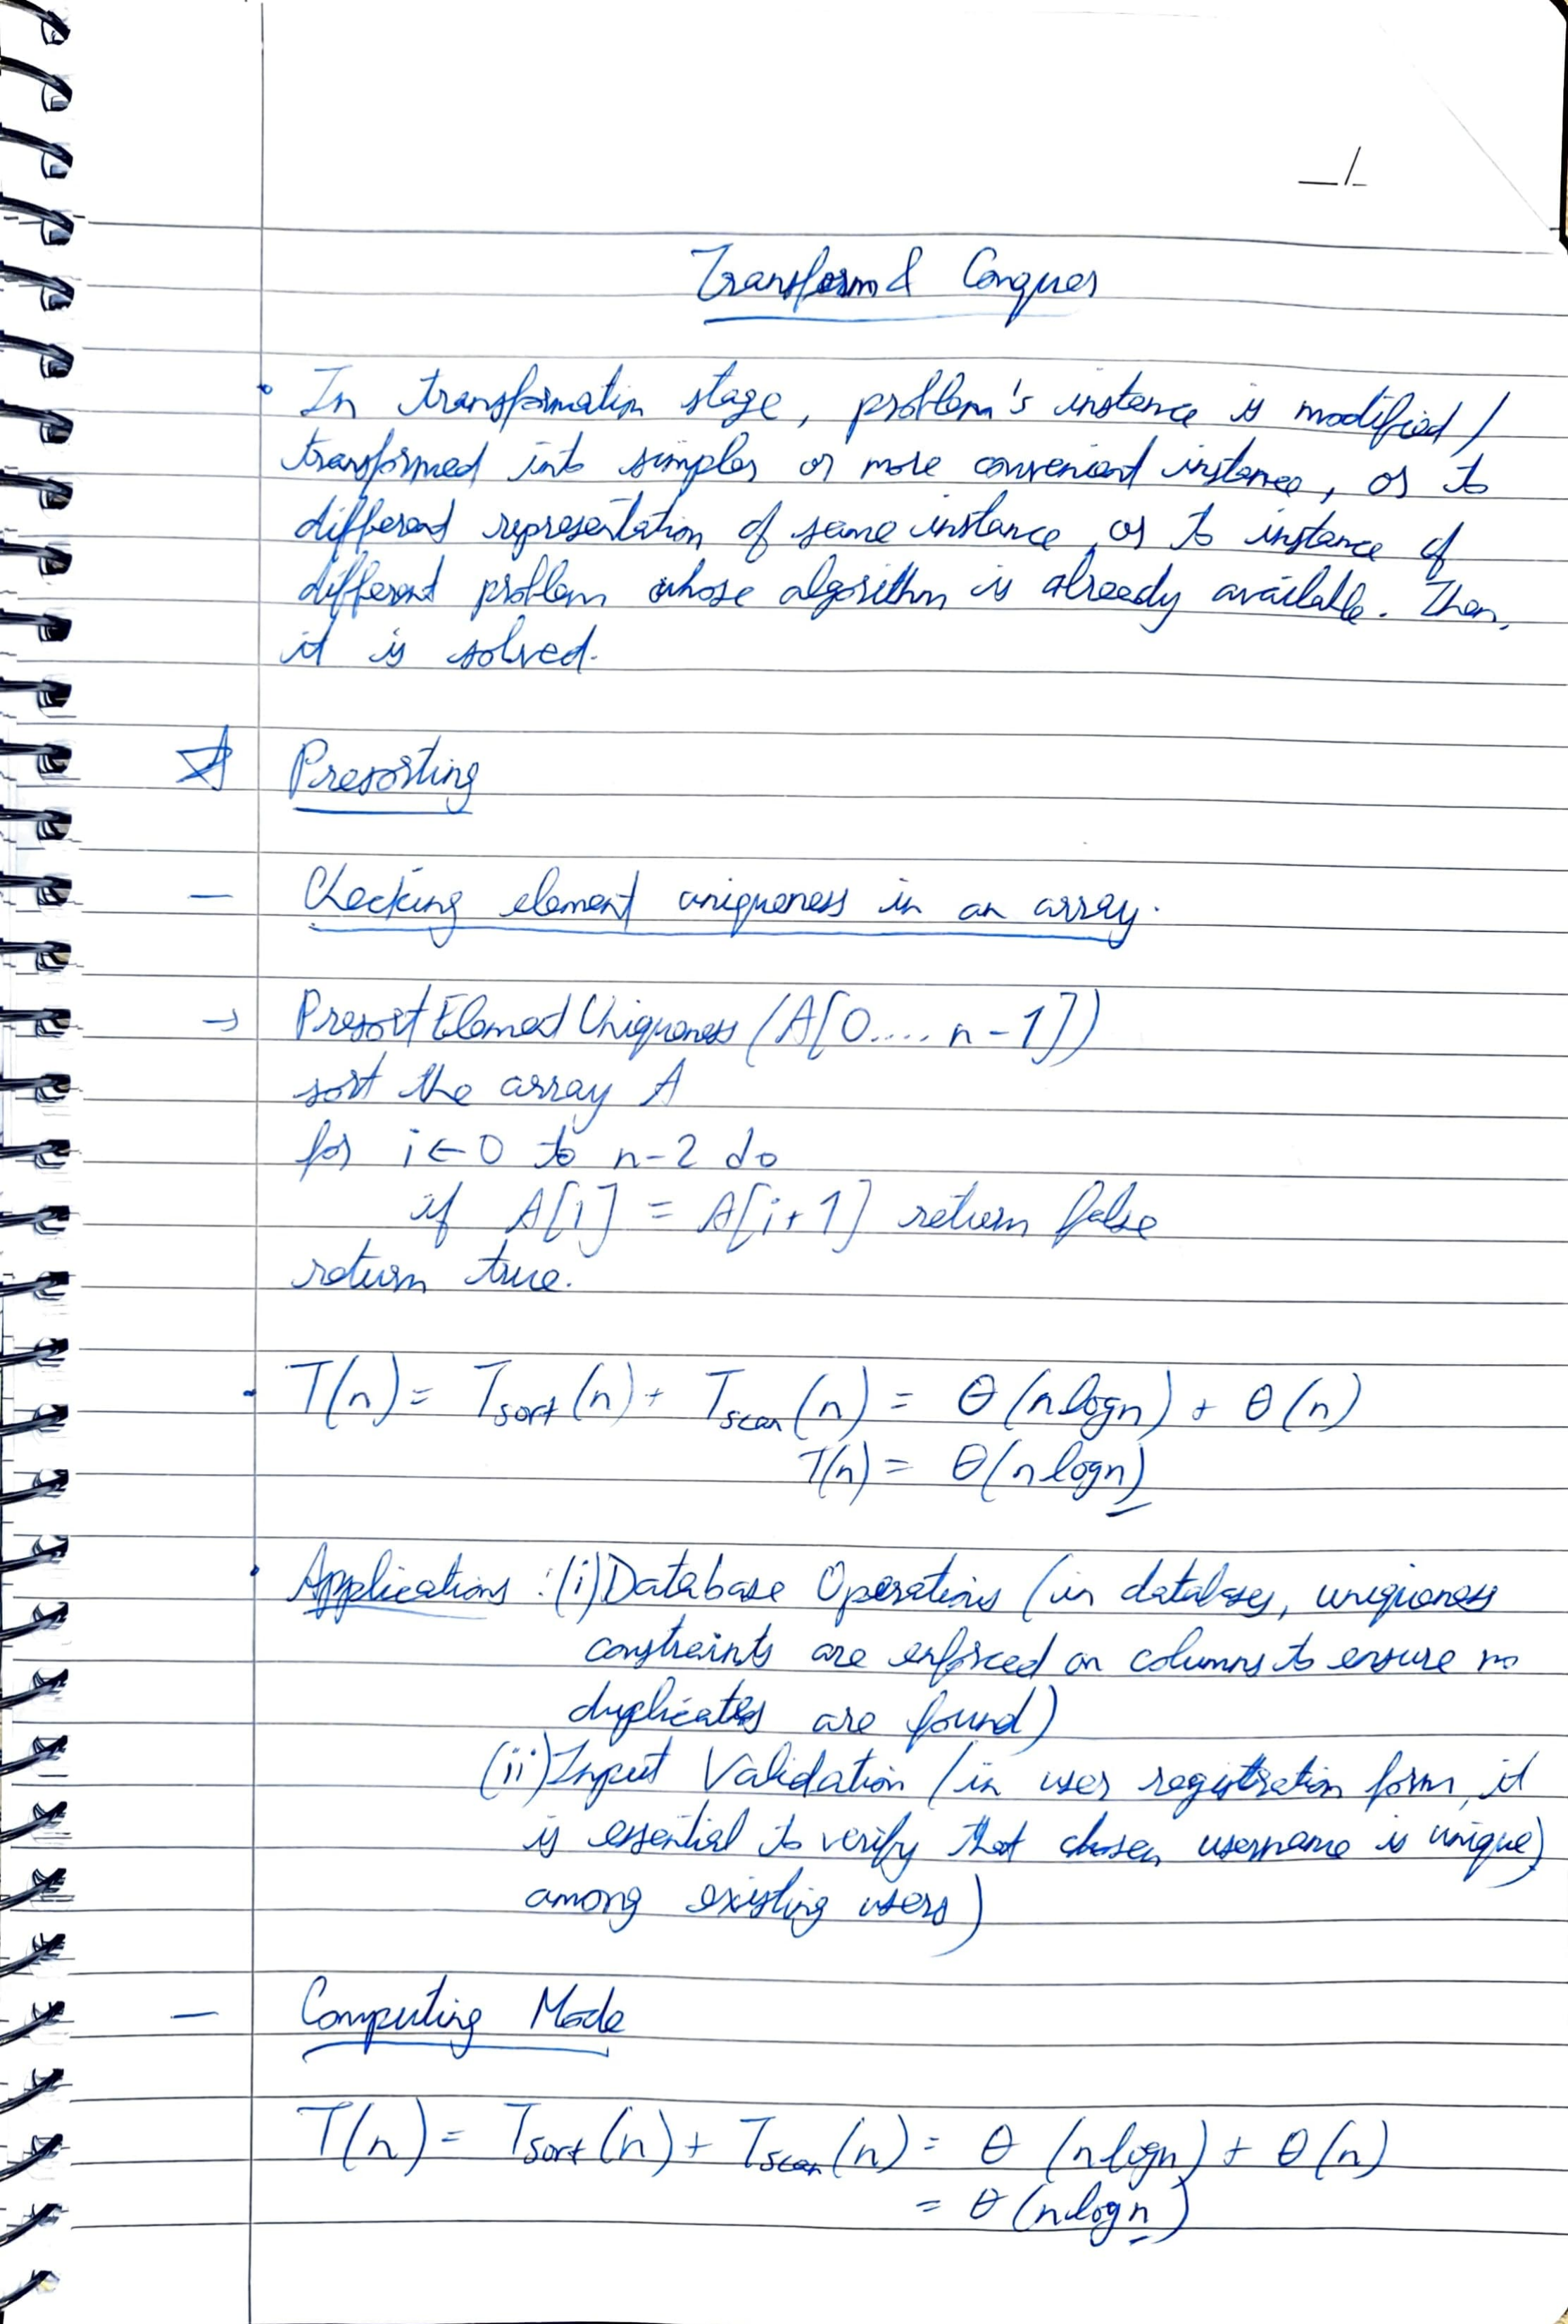 Transform & Conquer
• In transformation stage, problem's instance is modified /
transformed into simpler or more convenient instance, or to
different representation of same instance, or to instance of
different problem whose algorithm is already available. Then,
it is solved.
☆ Presorting
— Checking element uniqueness in an array.
→ PresortElementUniqueness (A[0....n-1])
sort the array A
for i ← 0 to n-2 do
if A[i] = A[i+1] return false
return true.
• T(n) = Tsort(n) + Tscan(n) = θ(nlogn) + θ(n)
T(n) = θ(nlogn)
• Applications : (i) Database Operations (in databases, uniqueness
constraints are enforced on columns to ensure no
duplicates are found)
(ii) Input Validation (in user registration form, it
is essential to verify that chosen username is unique)
among existing users)
— Computing Mode
T(n) = Tsort(n) + Tscan(n) = θ (nlogn) + θ(n)
= θ(nlogn)